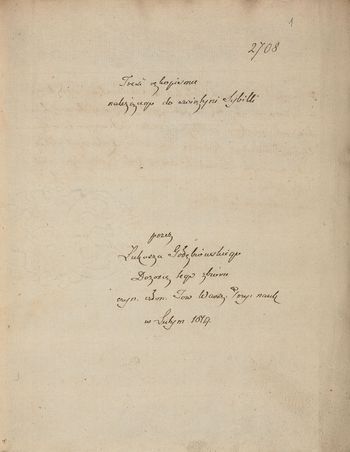 1
2708
Treść rękopismu
należącego do świątyni Sybilli
przez
Łukasza Gołębiowskiego
Dozorcę tego zbioru
czyn. człon. Tow. Warsz. Przyj. nauk
w Lutym 1819.